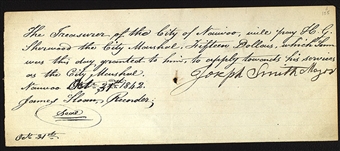 The Treasurer of the City of Nauvoo, will pay H. G.
Sherwood the City Marshal, Fifteen Dollars, which Sum
was this day granted to him, to apply towards his services
as the City Marshal.
Joseph Smith Mayor
Nauvoo Oct. 1842.
James Sloan, Recorder;
Seal
Oct. 31st